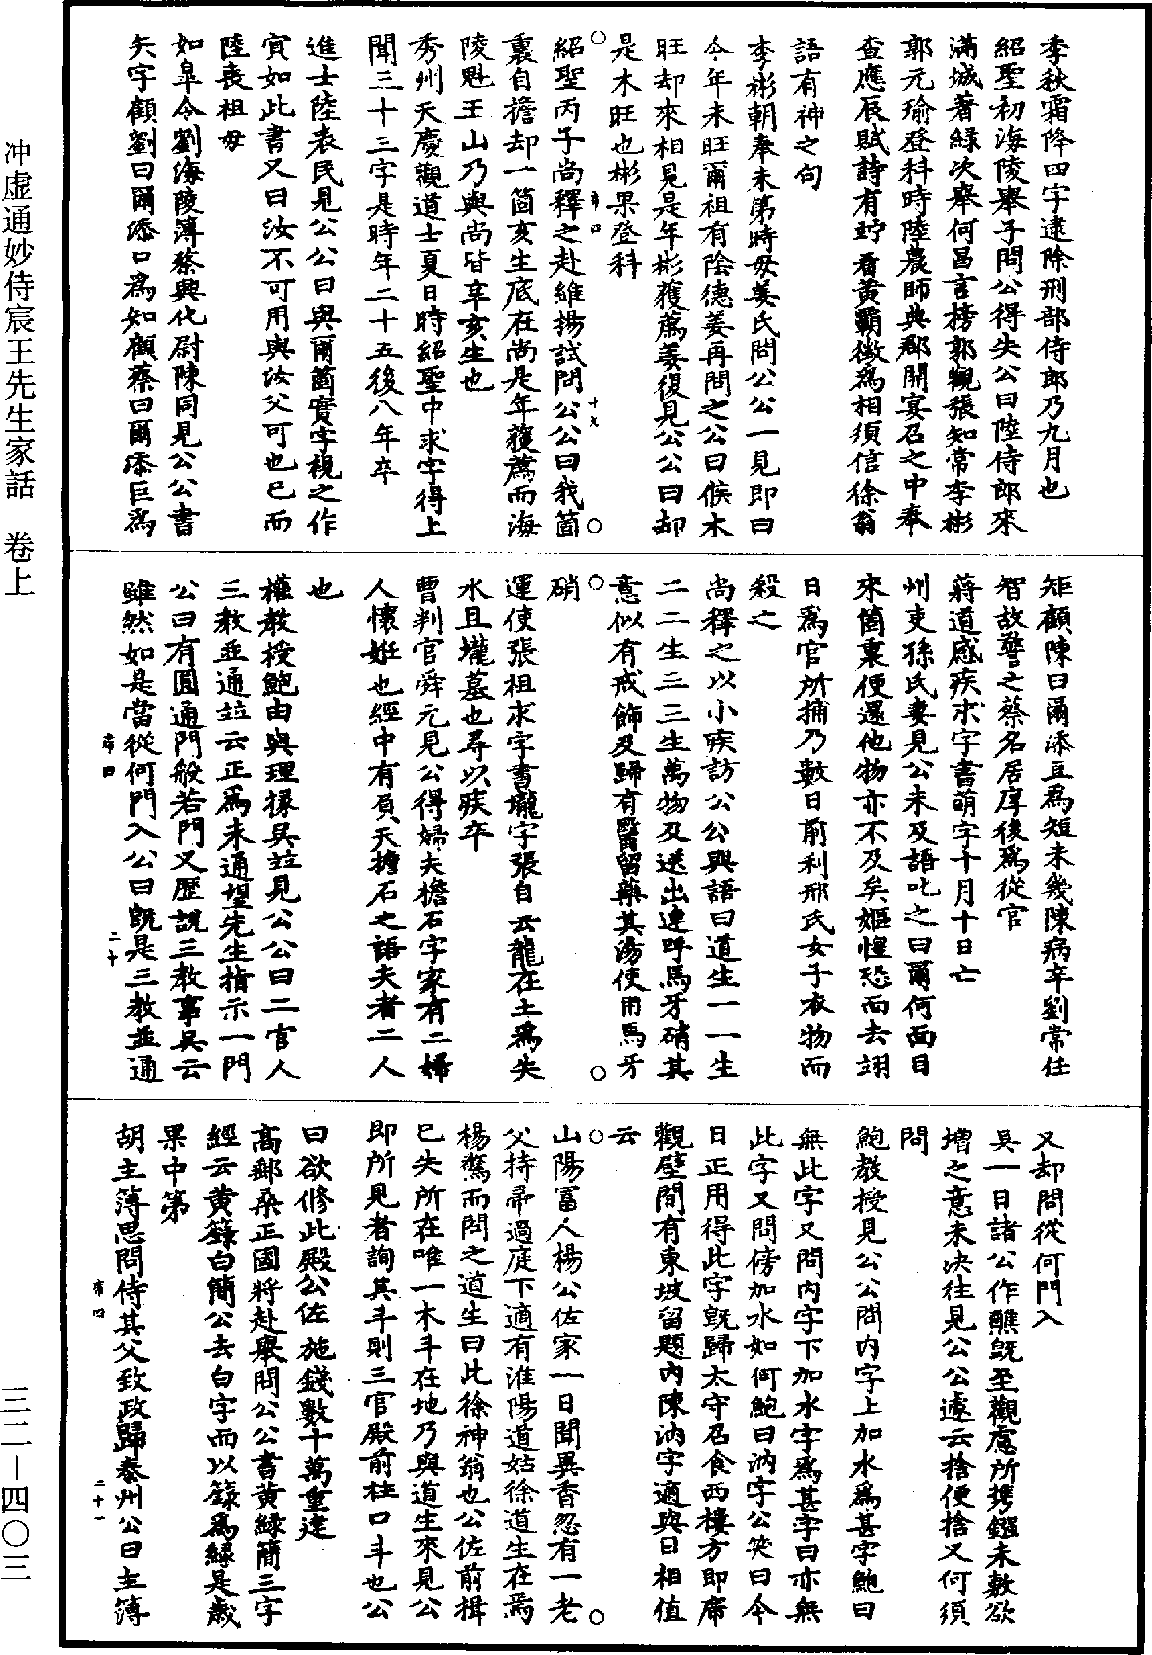 季秋霜降四字逮除刑部侍郎乃九月也
紹聖初海陵舉子問公得失公曰陸侍郎來
滿城著綠次舉何昌言榜郭觀張知常李彬
郭元瑜登科時陸農師典郡開宴召之中奉
查應辰賦詩有貯看黃霸徵為相須信徐翁
語有神之句
李彬朝奉未第時母姜氏問公公一見即曰
今年未旺爾祖有陰德姜再問之公曰候木
旺却來相見是年彬獲薦姜復見公公曰却
是木旺也彬果登科
紹聖丙子尚釋之赴維揚試問公公曰我箇
裏自擔却一箇亥生底在尚是年獲薦而海
陵魁王山乃與尚皆辛亥生也
秀州天慶觀道士夏日時紹聖中求字得上
聞三十三字是時年二十五後八年卒
進士陸表民見公公曰與爾箇實字視之作
寅如此書又曰汝不可用與汝父可也已而
陸喪祖母
如皋令劉海陵簿蔡興化尉陳同見公公書
矢字顧劉曰爾添口為知顧蔡曰爾添巨為
矩顧陳曰爾添豆為短未幾陳病卒劉常任
智故警之蔡名居厚後為從官
蔣道感疾求字書萌字十月十日亡
州吏孫氏妻見公未及語叱之曰爾何面目
來箇裏便還他物亦不及矣嫗惶恐而去翊
日為官所捕乃數日前利邢氏女子衣物而
殺之
尚釋之以小疾訪公公與語曰道生一一生
二二生三三生萬物及送出連呼馬牙硝其
意似有戒飾及歸有醫留藥其湯使用馬牙
硝
運使張祖求字書壠字張自云龍在土為失
水且壠墓也尋以疾卒
曹判官舜元見公得婦夫檐石字家有二婦
人懷姙也經中有負天擔石之語夫者二人
也
權教授鮑由與理掾吳竝見公公曰二官人
三教並通竝云正為未通望先生指示一門
公曰有圓通門般若門又歷說三教事吳云
雖然如是當從何門入公曰既是三教並通
又却問從何門入
吳一日諸公作醮既至觀慮所携鏹未敷欲
增之意未決往見公公遽云捨便捨又何須
問
鮑教授見公公問內字上加水為甚字鮑曰
無此字又問內字下加水字為甚字曰亦無
此字又問傍加水如何鮑曰汭字公笑曰今
日正用得此字既歸太守召食西樓方即席
觀壁間有東坡留題內陳汭字適與日相值
云
山陽富人楊公佐家一日聞異香忽有一老
父持帚過庭下適有淮陽道姑徐道生在焉
楊驚而問之道生曰此徐神翁也公佐前揖
已失所在唯一木斗在地乃與道生來見公
即所見者詢其斗則三官殿前柱口斗也公
曰欲修此殿公佐施錢數十萬重建
高郵桑正國將赴舉問公公書黃綠簡三字
經云黃籙白簡公去白字而以籙為綠是歲
果中第
胡主簿思問侍其父致政歸泰州公曰主簿
席四
十九
席四
二十
席四
二十一
冲虛通妙侍宸王先生家話 卷上
三二—四〇三